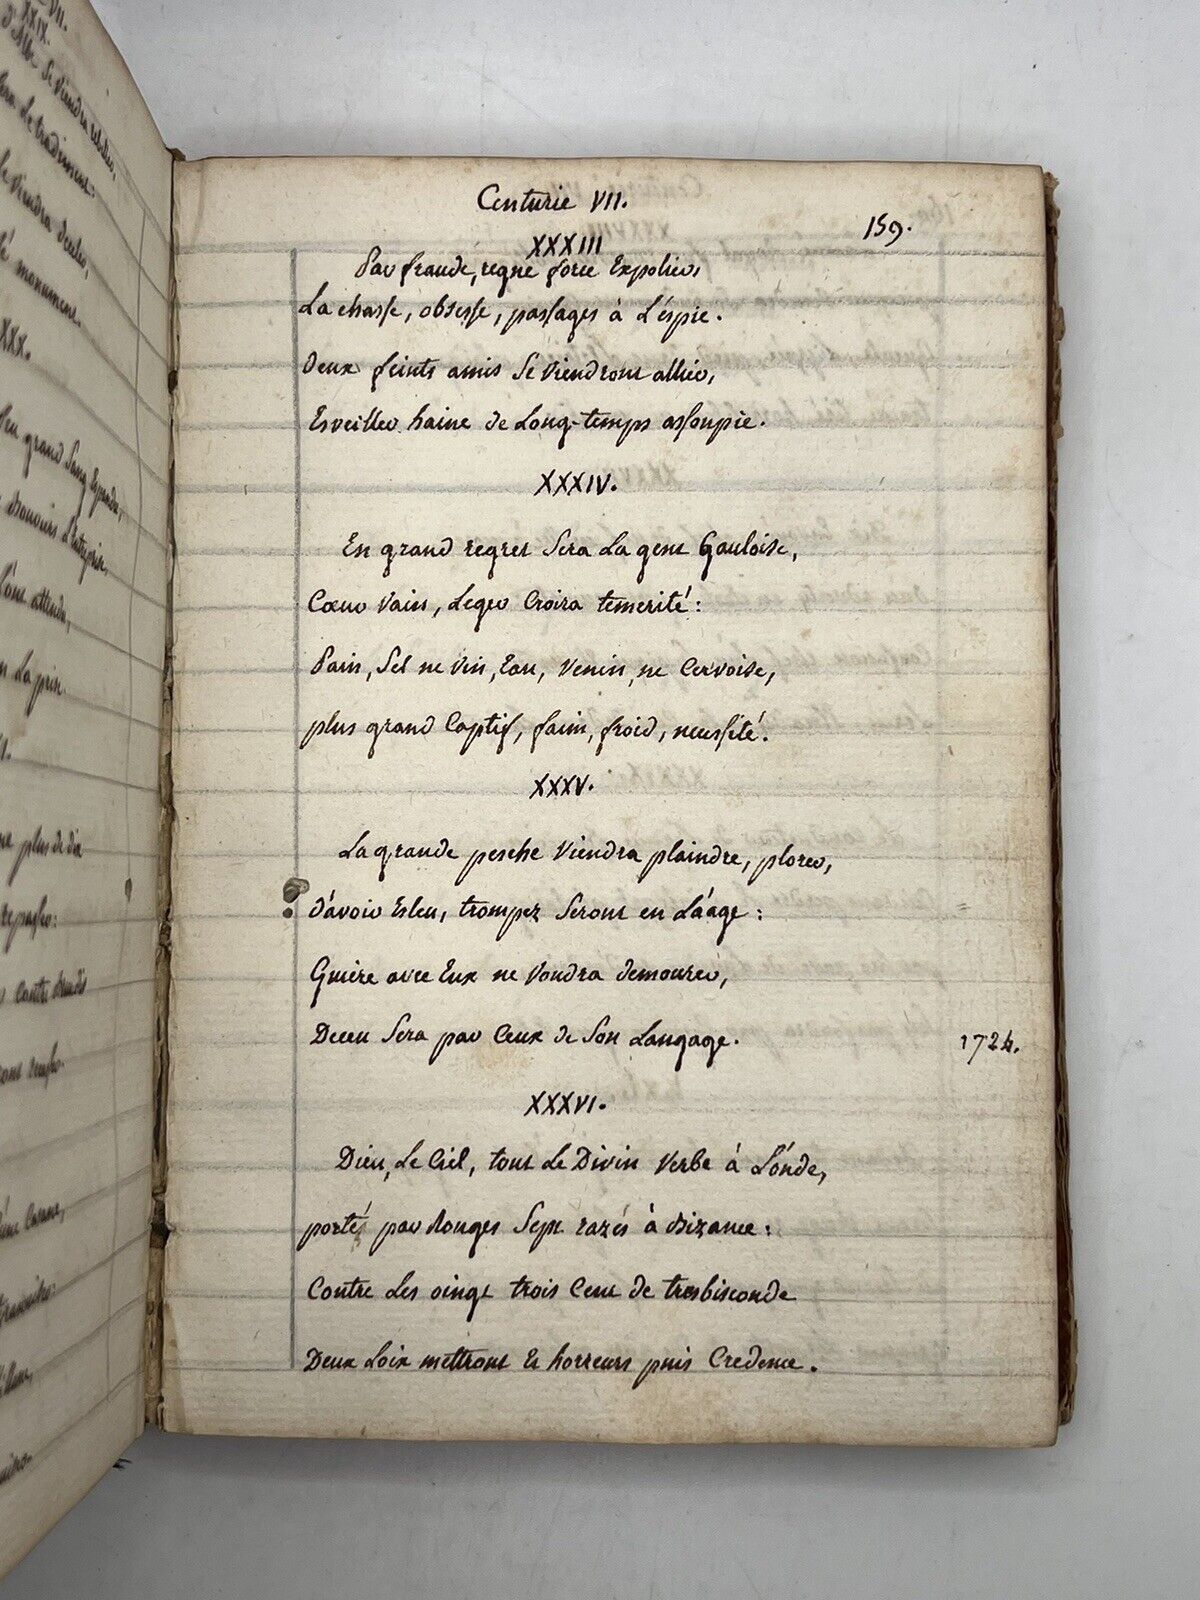 VII.
XXIX.
Se viendra rebeller,
Le tradiment.
viendra
monument.
XXX.
grand Sang Espandu,
L'entreprise,
attendu,
La prix.
plus de dix
Centurie VII.
159.
XXXIII
Par fraude, regne force Expolier,
La chasse, obsesse, passages à L'éspie.
Deux feints amis Se Viendront allier,
Esveiller haine de Long-temps assoupie.
XXXIV.
En grand regret Sera La gent Gauloise,
Cœur Vain, Leger Croira temerité:
Pain, Sel ne Vin, Eau, Venin, ne Cervoise,
plus grand Captif, faim, froid, necessité.
XXXV.
La grande pesche Viendra plaindre, plorer,
D'avoir Esleu, trompez Seront en L'áage:
Guiere avec Eux ne Voudra demourer,
Deceu Sera par Ceux de Son Langage.
1724.
XXXVI.
Dieu, Le Ciel, tout Le Divin Verbe à L'ónde,
portés par Rouges Sept razés à Bizance:
Contre Les oingt trois Cent de tresbisconde
Deux Loix mettront Et horreurs puis Credence.